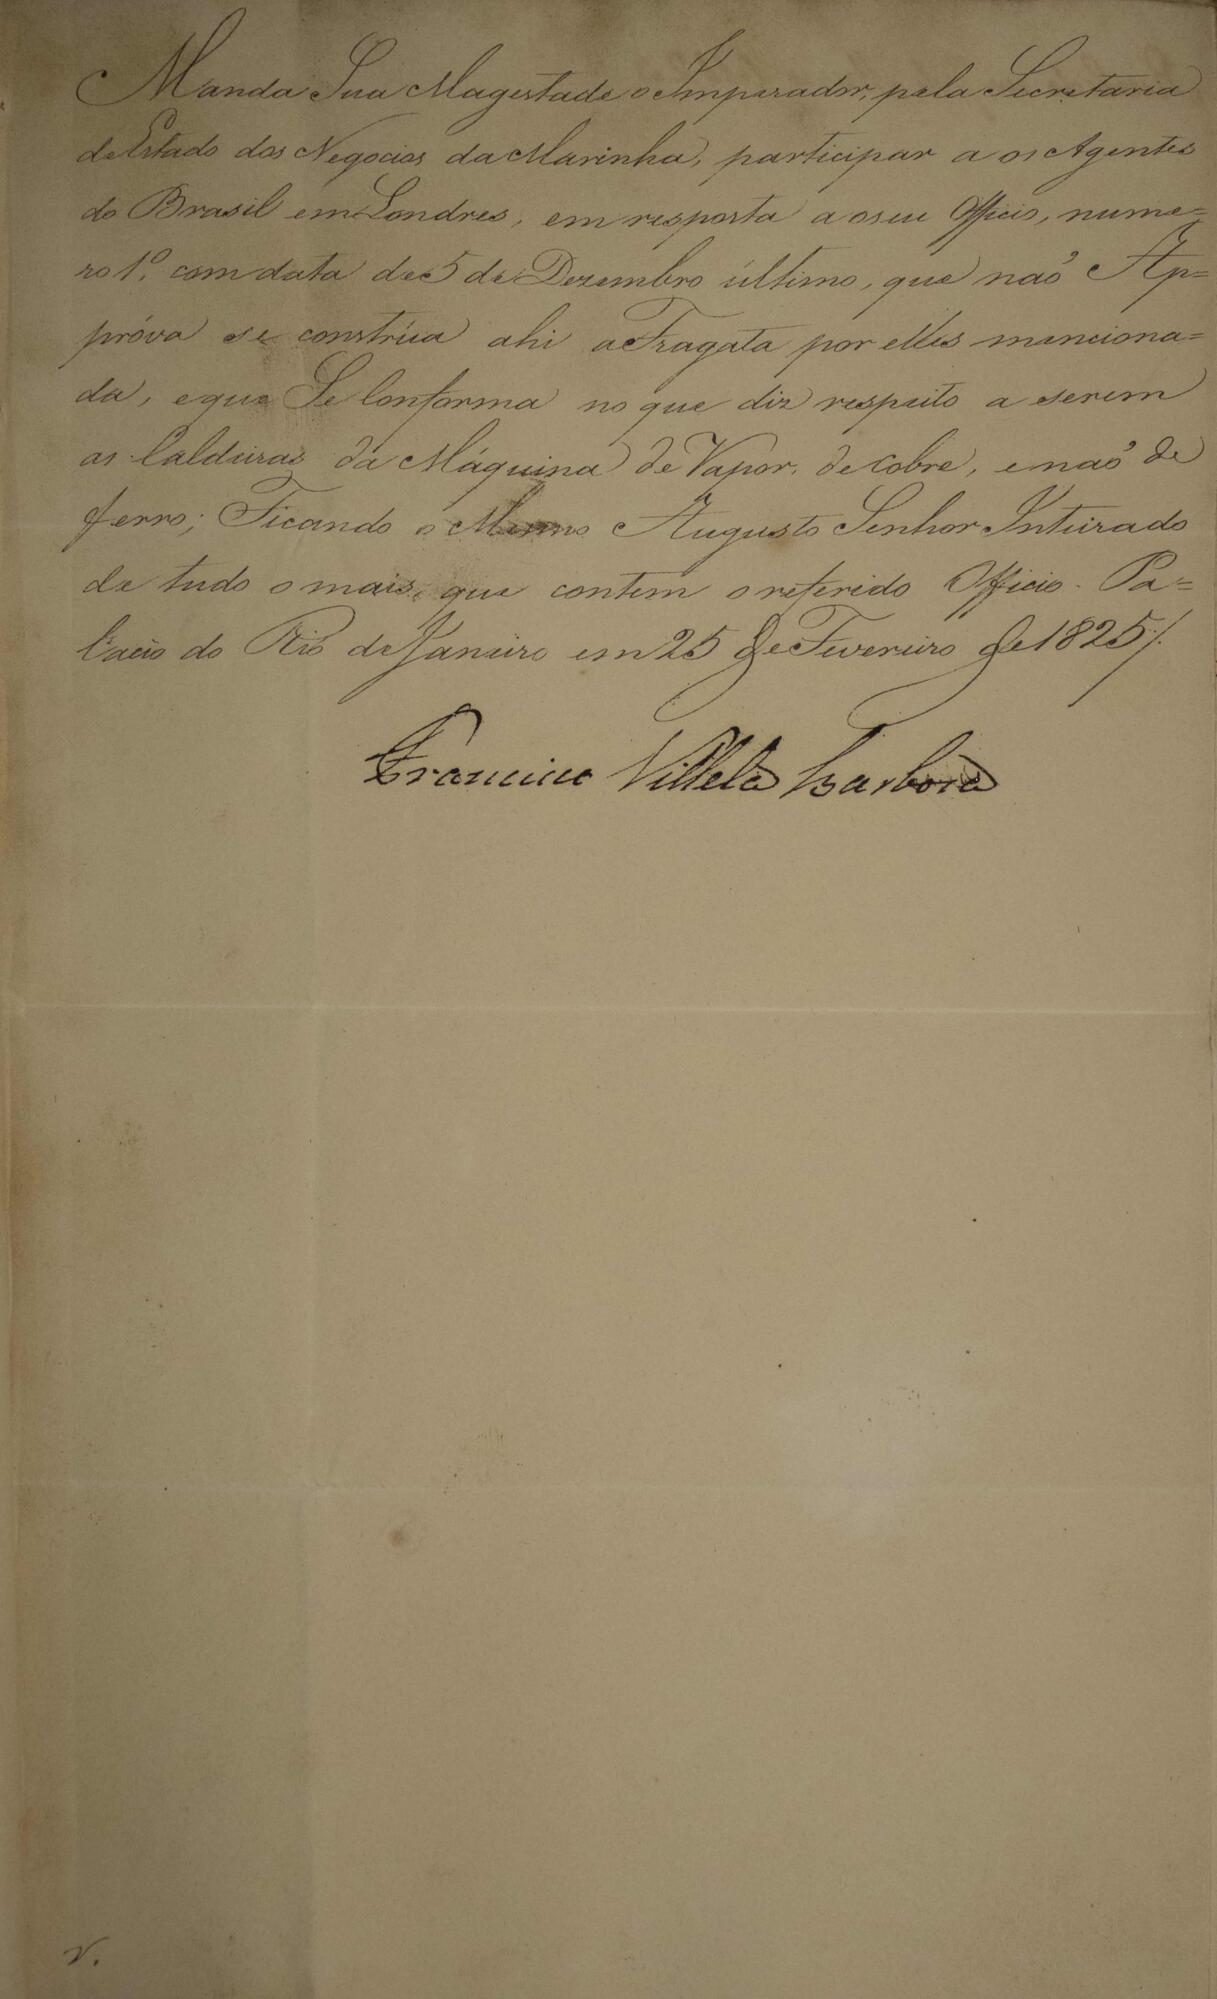 Manda Sua Magestade o Imperador, pela Secretaria
de Estado dos Negocios da Marinha, participar a os Agentes
do Brasil em Londres, em resposta a o seu Officio, nume=
ro 1º. com data de 5 de Dezembro último, que naõ Ap=
próva se constrúa ahi a Fragata por elles menciona=
da, e que Se Conforma no que diz respeito a serem
as Caldeiras da Máquina de Vapor, de cobre, e naõ de
ferro; Ficando o Mesmo Augusto Senhor Inteirado
de tudo o mais, que contem o referido Officio. Pa=
lacio do Rio de Janeiro em 25 de Fevereiro de 1825./.
Francisco Villela Barbosa
V.